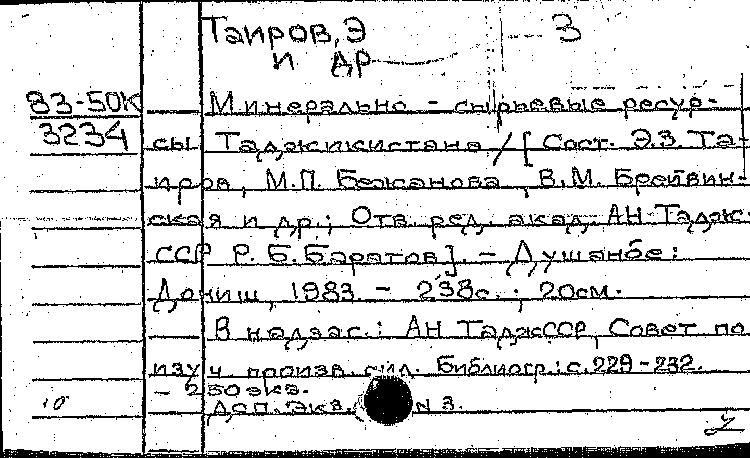 Таиров, Э
3
и др
83-50К
3234
Минерально - сырьевые ресур-
сы Таджикистана / [Сост. Э.З. Та-
иров, М.П. Бежанова, В.М. Брейвин-
ская и др.; Отв. ред. акад. АН Тадж.
ССР Р.Б. Баратов]. - Душанбе:
Дониш, 1983 - 238с.; 20см.
В надзаг.: АН ТаджССР, Совет по
изуч. произв. сил. Библиогр.: с. 229-232.
- 250 экз.
ДСП. Экз. N 3.
10